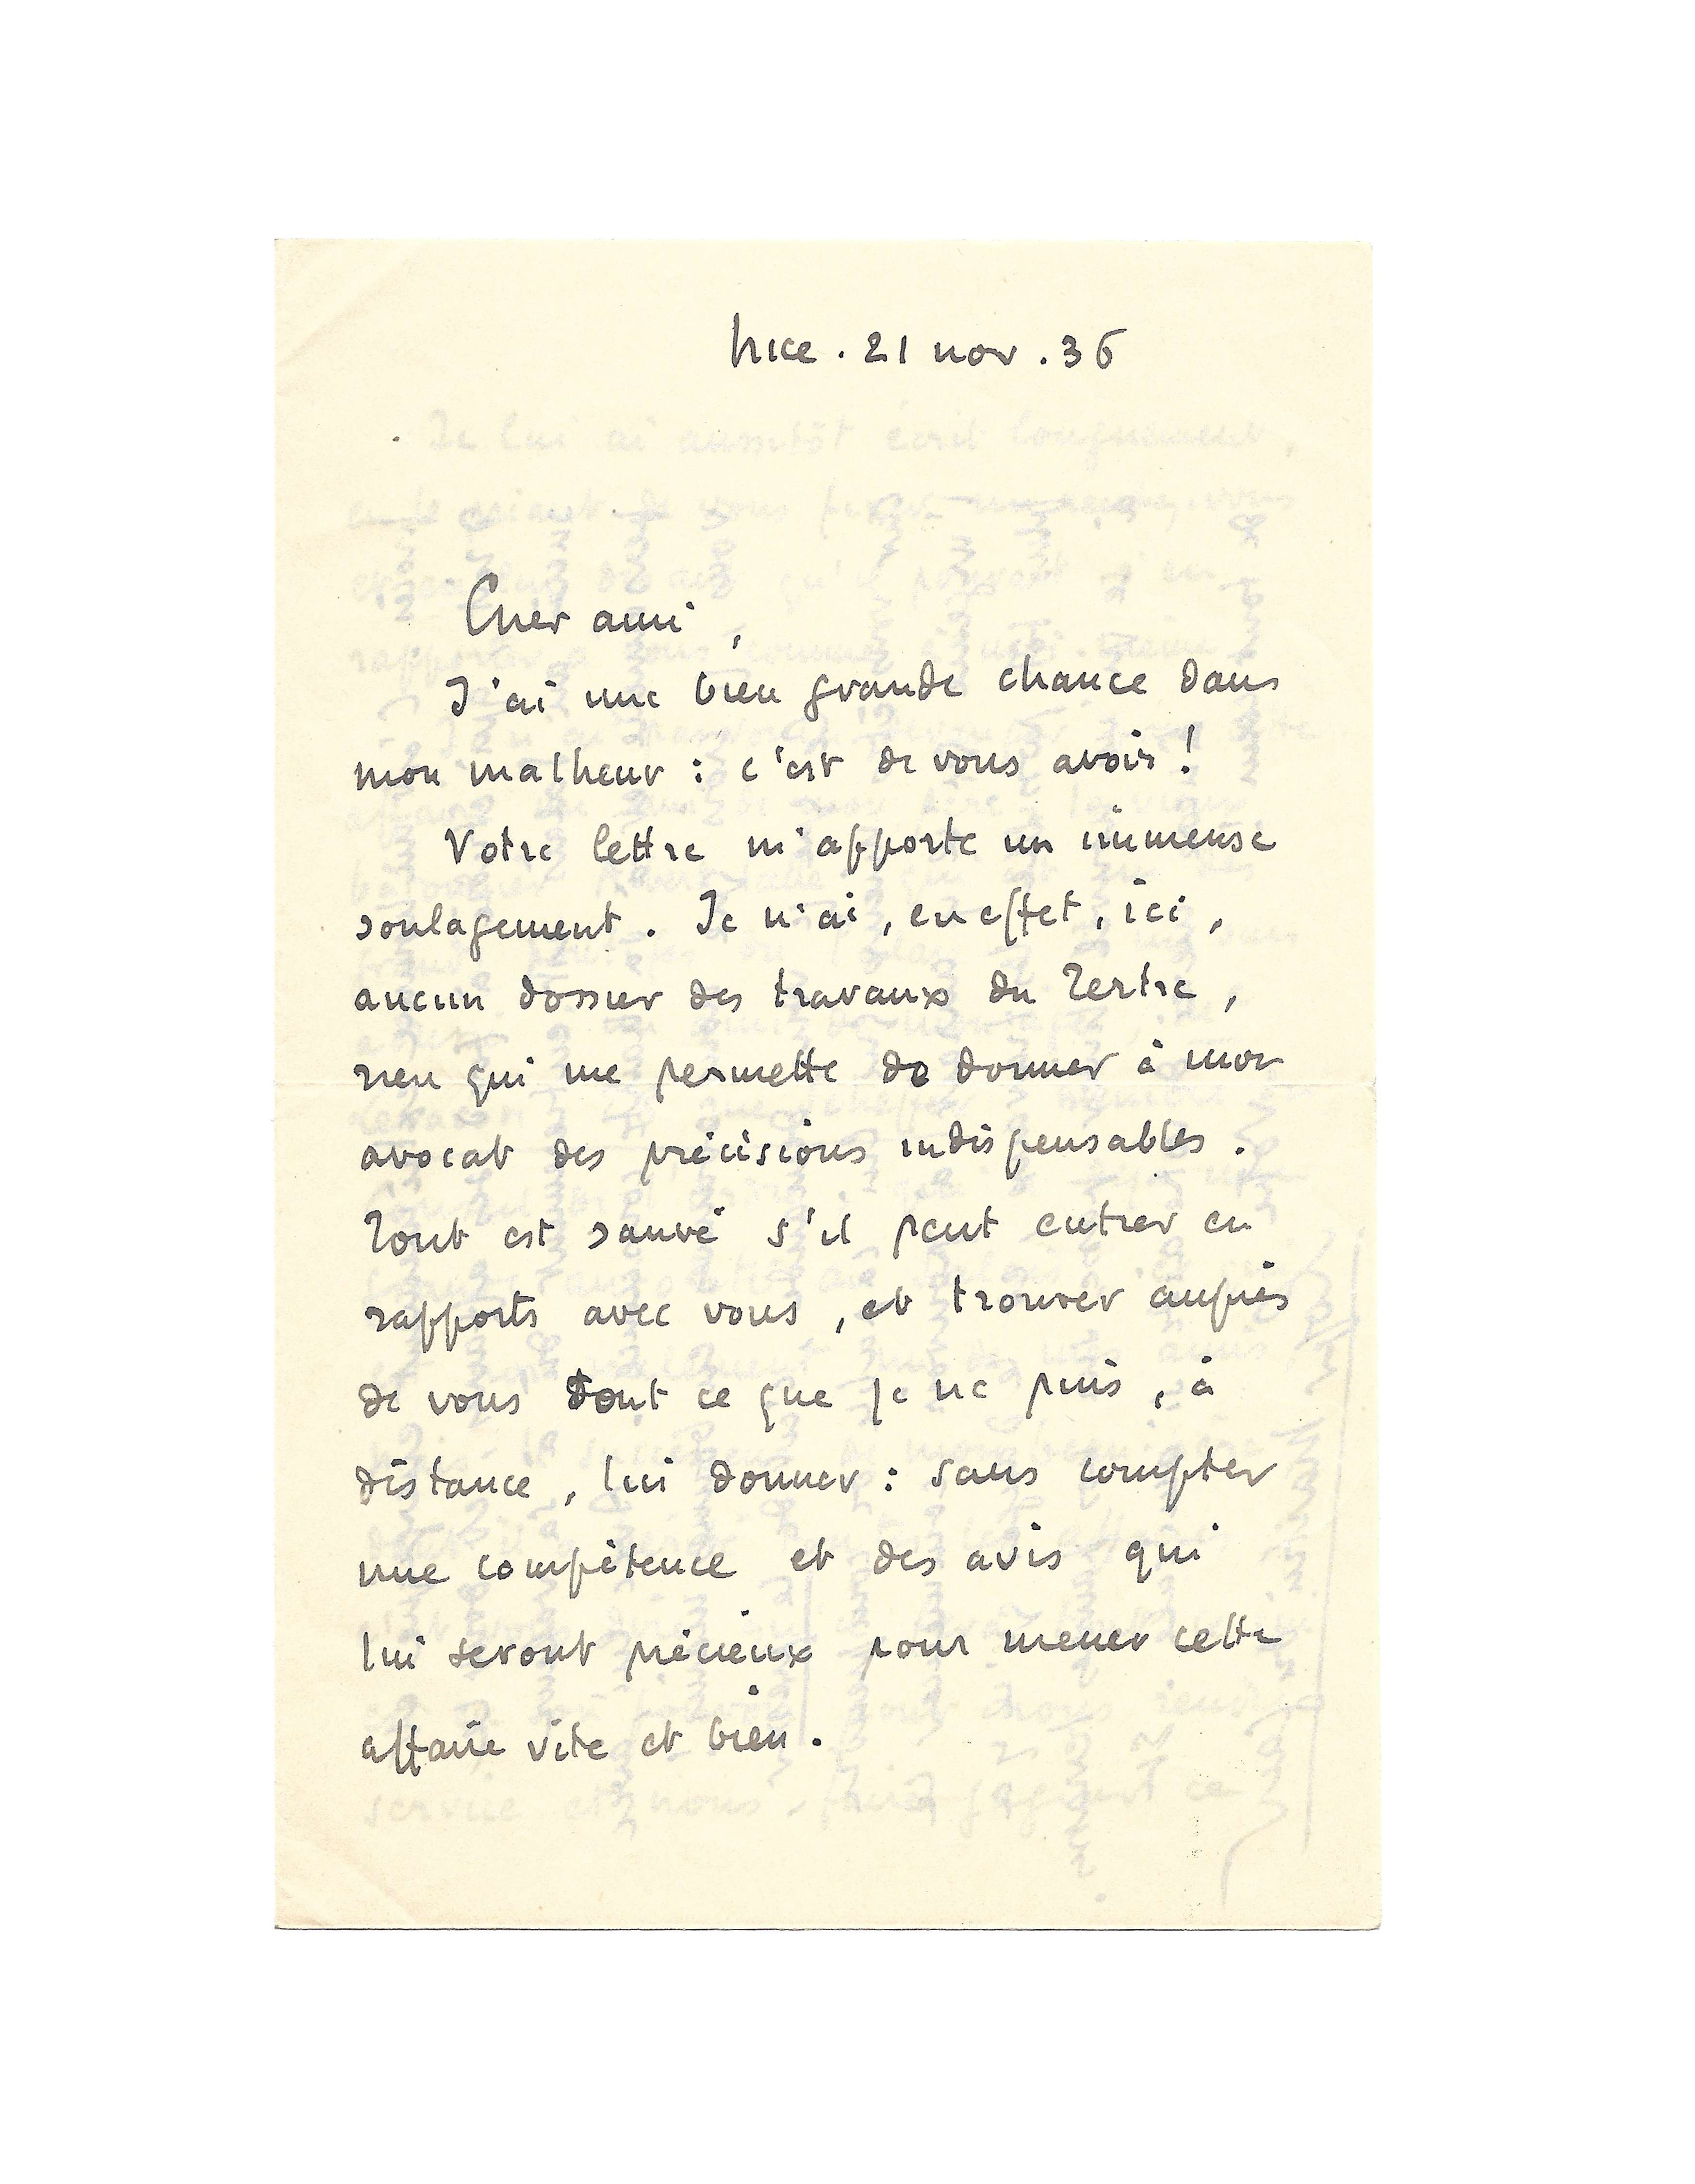 Nice . 21 nov . 36
Cher ami ,
J'ai une bien grande chance dans
mon malheur : c'est de vous avoir !
Votre lettre m'apporte un immense
soulagement . Je n'ai , en effet , ici ,
aucun dossier des travaux du Tertre ,
rien qui me permette de donner à mon
avocat des précisions indispensables .
Tout est sauvé s'il peut entrer en
rapports avec vous , et trouver auprès
de vous tout ce que je ne puis , à
distance , lui donner : sans compter
une compétence et des avis qui
lui seront précieux pour mener cette
affaire vite et bien .